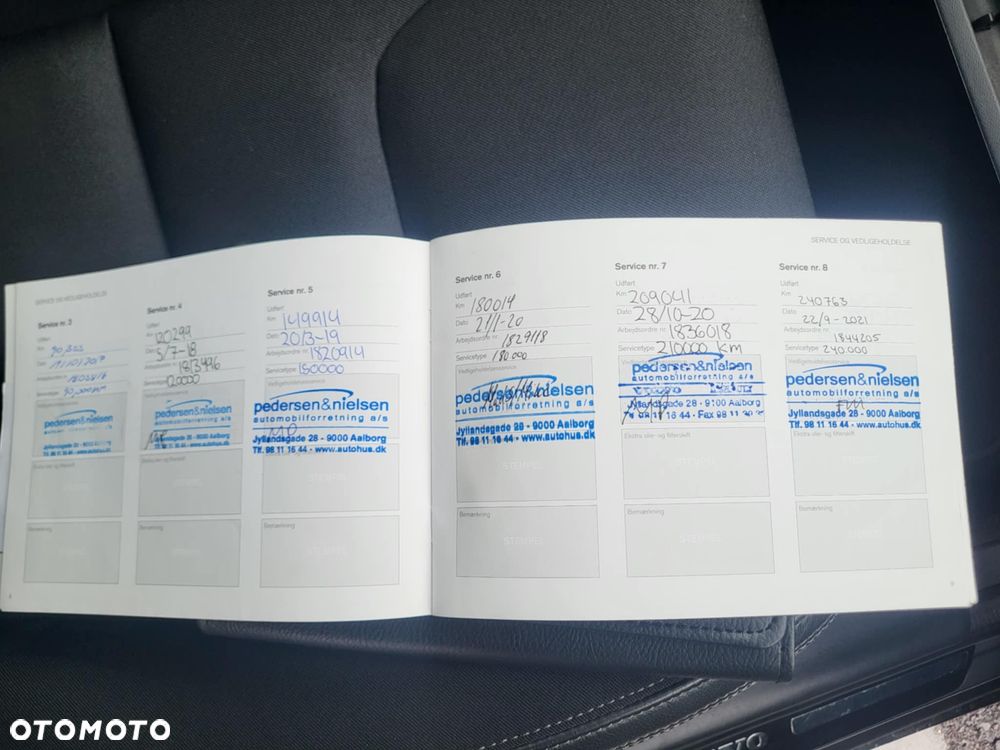 SERVICE OG VEDLIGEHOLDELSE
Service nr. 3
Udført
Km 90322
Dato
Arbejdsordre nr.
Servicetype 90,000
pedersen&nielsen
automobilforretning a/s
Jyllandsgade 28 - 9000 Aalborg
Ekstra olie- og filterskift
STEMPEL
Bemærkning
STEMPEL
Service nr. 4
Udført
Km 120299
Dato 5/7-18
Arbejdsordre nr. 1813496
Servicetype 120000
pedersen&nielsen
automobilforretning a/s
Jyllandsgade 28 - 9000 Aalborg
Tlf. 98 11 16 44 - www.autohus.dk
Ekstra olie- og filterskift
STEMPEL
Bemærkning
STEMPEL
Service nr. 5
Udført
Km 149914
Dato 20/3-19
Arbejdsordre nr. 1820914
Servicetype 150000
Vedligeholdelsesservice
pedersen&nielsen
automobilforretning a/s
MO
Jyllandsgade 28 - 9000 Aalborg
Tlf. 98 11 16 44 - www.autohus.dk
STEMPEL
Bemærkning
STEMPEL
Service nr. 6
Udført
Km 180014
Dato 21/1-20
Arbejdsordre nr. 1829118
Servicetype 180 000
Vedligeholdelsesservice
pedersen&nielsen
automobilforretning a/s
Jyllandsgade 28 - 9000 Aalborg
Tlf. 98 11 16 44 - www.autohus.dk
STEMPEL
Bemærkning
STEMPEL
Service nr. 7
Udført
Km 209041
Dato 28/10-20
Arbejdsordre nr. 1836018
Servicetype 210000 Km
pedersen&nielsen
automobilforretning a/s
Jyllandsgade 28 - 9100 Aalborg
Tlf. 98 11 16 44 - Fax 98 11
Ekstra olie- og filterskift
STEMPEL
Bemærkning
STEMPEL
SERVICE OG VEDLIGEHOLDELSE
Service nr. 8
Udført
Km 240763
Dato 22/9-2021
Arbejdsordre nr. 1844205
Servicetype 240.000
Vedligeholdelsesservice
pedersen&nielsen
automobilforretning a/s
Jyllandsgade 28 - 9000 Aalborg
Tlf. 98 11 16 44 - www.autohus.dk
Ekstra olie- og filterskift
STEMPEL
Bemærkning
STEMPEL
8
9
OTOMOTO